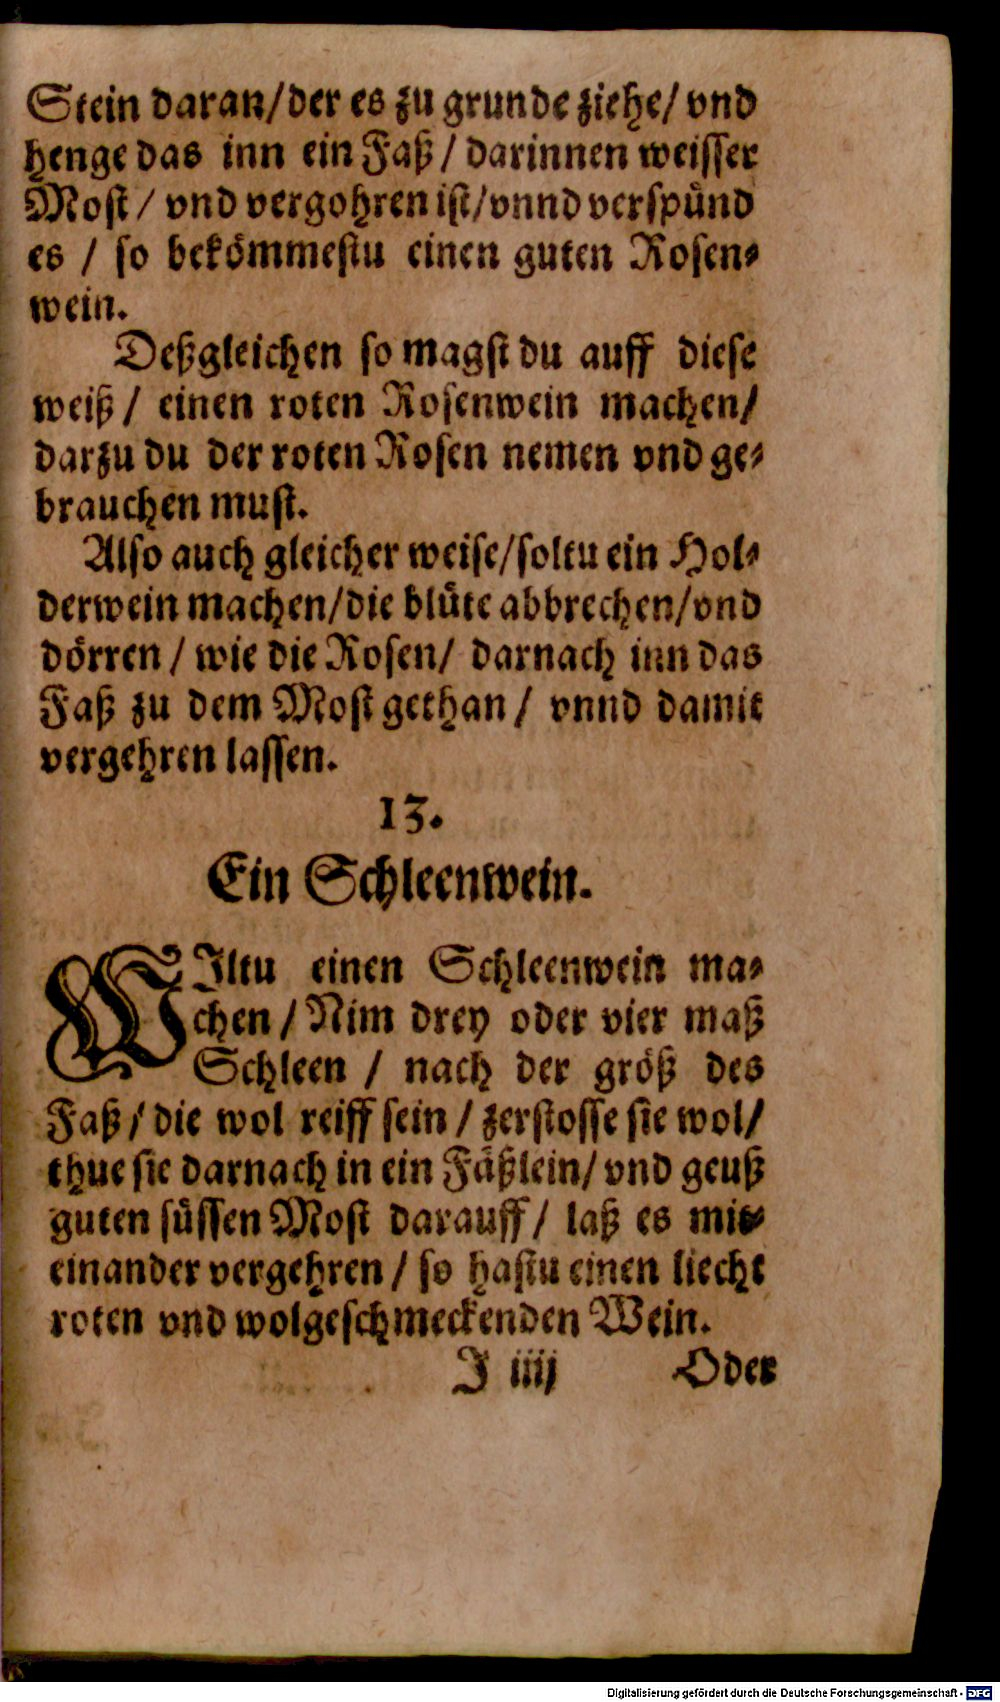 Stein daran/der es zu grunde ziehe/ vnd
henge das inn ein Faß / darinnen weisser
Most / vnd vergohren ist/vnnd verspünd
es / so bekömmestu einen guten Rosen-
wein.
Deßgleichen so magst du auff diese
weiß / einen roten Rosenwein machen/
darzu du der roten Rosen nemen vnd ge-
brauchen must.
Also auch gleicher weise/soltu ein Hol-
derwein machen/die blüte abbrechen/vnd
dörren / wie die Rosen/ darnach inn das
Faß zu dem Most gethan / vnnd damit
vergehren lassen.
13.
Ein Schleenwein.
WIltu einen Schleenwein ma-
chen / Nim drey oder vier maß
Schleen / nach der größ des
Faß / die wol reiff sein / zerstosse sie wol/
thue sie darnach in ein Fäßlein/ vnd geuß
guten süssen Most darauff / laß es mit-
einander vergehren / so hastu einen liecht
roten vnd wolgeschmeckenden Wein.
J iiij Oder
Digitalisierung gefördert durch die Deutsche Forschungsgemeinschaft - DFG